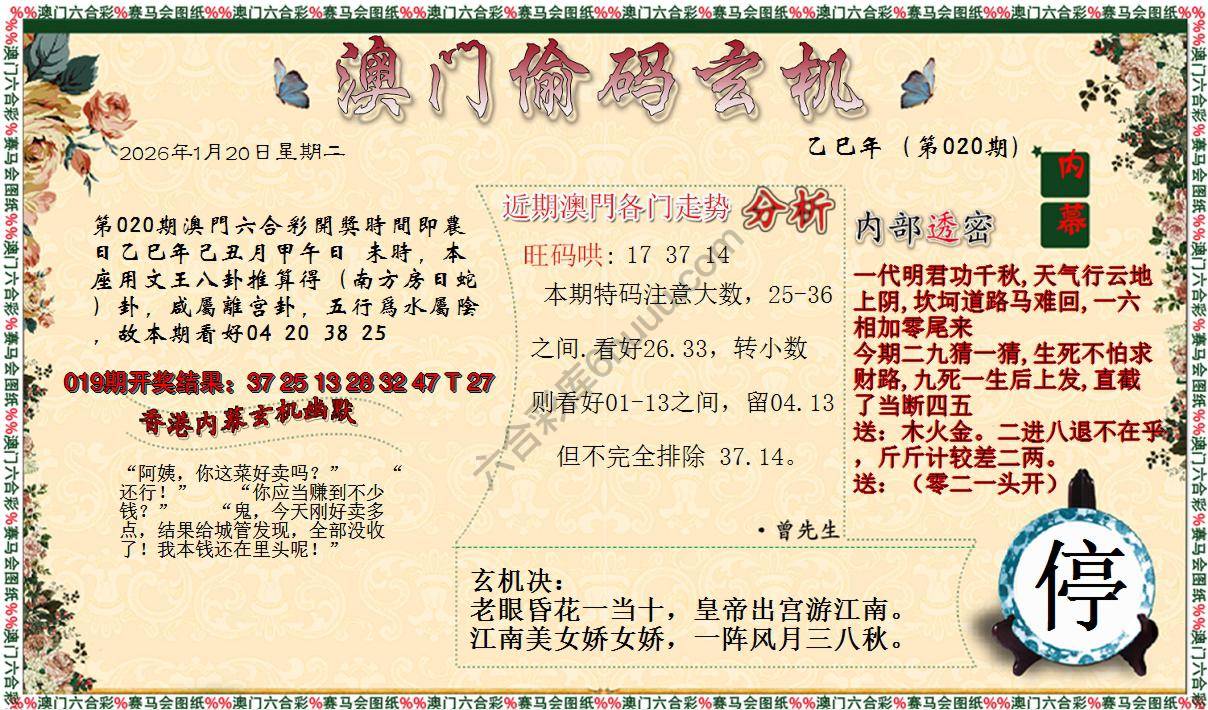 %%澳门六合彩%赛马会图纸%%澳门六合彩%赛马会图纸%%澳门六合彩%赛马会图纸%%澳门六合彩%赛马会图纸%%澳门六合彩%赛马会图纸%%澳门六合彩%赛马会图纸%%
澳门偷码玄机
2026年1月20日星期二
乙巳年（第020期）
内
幕
第020期澳門六合彩開獎時間即農
日乙巳年己丑月甲午日 未時，本
座用文王八卦推算得（南方房日蛇
）卦，咸屬離宫卦，五行爲水屬陰
，故本期看好04 20 38 25
019期开奖结果：37 25 13 28 32 47 T 27
香港内幕玄机幽默
“阿姨，你这菜好卖吗？” “
还行！” “你应当赚到不少
钱？” “鬼，今天刚好卖多
点，结果给城管发现，全部没收
了！我本钱还在里头呢！”
近期澳門各门走势 分析
旺码哄：17 37 14
本期特码注意大数，25-36
之间.看好26.33，转小数
则看好01-13之间，留04.13
但不完全排除 37.14。
·曾先生
内部透密
一代明君功千秋,天气行云地
上阴,坎坷道路马难回,一六
相加零尾来
今期二九猜一猜,生死不怕求
财路,九死一生后上发,直截
了当断四五
送：木火金。二进八退不在乎
，斤斤计较差二两。
送：（零二一头开）
玄机决：
老眼昏花一当十，皇帝出宫游江南。
江南美女娇女娇，一阵风月三八秋。
停